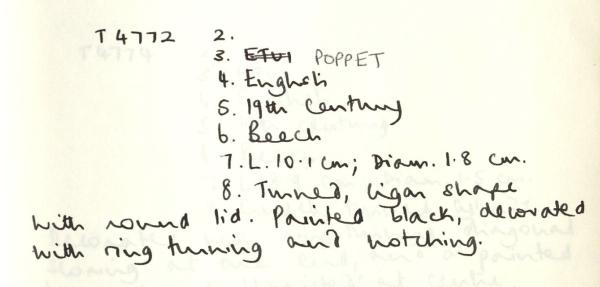 T4772 2.
3. ETUI POPPET
4. English
5. 19th Century
6. Beech
7. L. 10.1 cm; Diam. 1.8 cm.
8. Turned, cigar shape
with round lid. Painted black, decorated
with ring turning and notching.